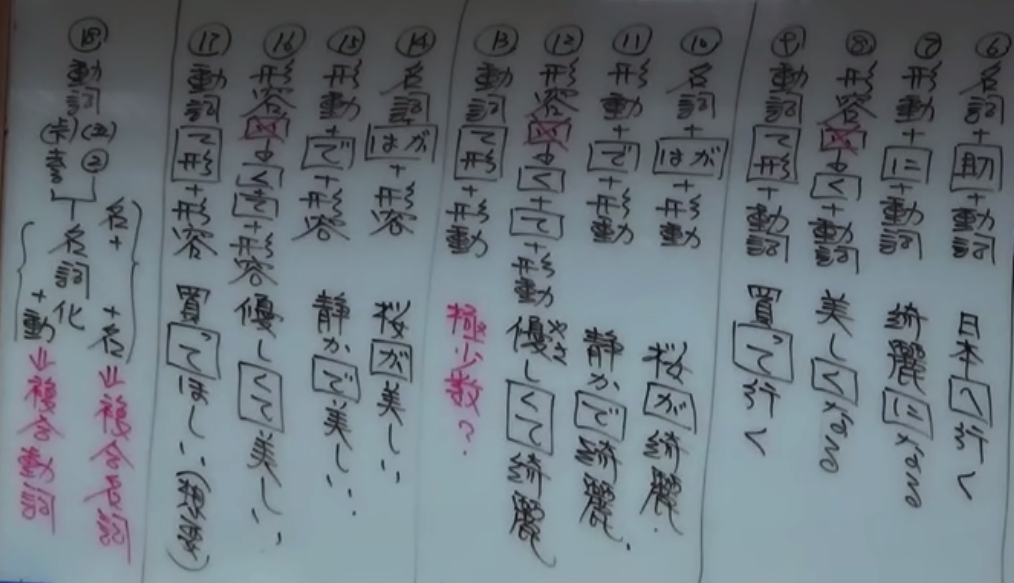 ⑥名詞+助+動詞 日本へ行く
⑦形動+に+動詞 綺麗になる
⑧形容い→く+動詞 美しくなる
⑨動詞て形+動詞 買って行く
⑩名詞+はが+形動 桜が綺麗.
⑪形動+で+形動 静かで綺麗.
⑫形容い→く+て+形動 優しくて綺麗 やさ
⑬動詞て形+形動 極少数?
⑭名詞はが+形容 桜が美しい
⑮形動+で+形容 静かで美しい.
⑯形容い→くて+形容 優しくて美しい.
⑰動詞て形+形容 買ってほしい(想要)
⑱動詞
②
名詞化
名+ +名⇒複合名詞
+動⇒複合動詞